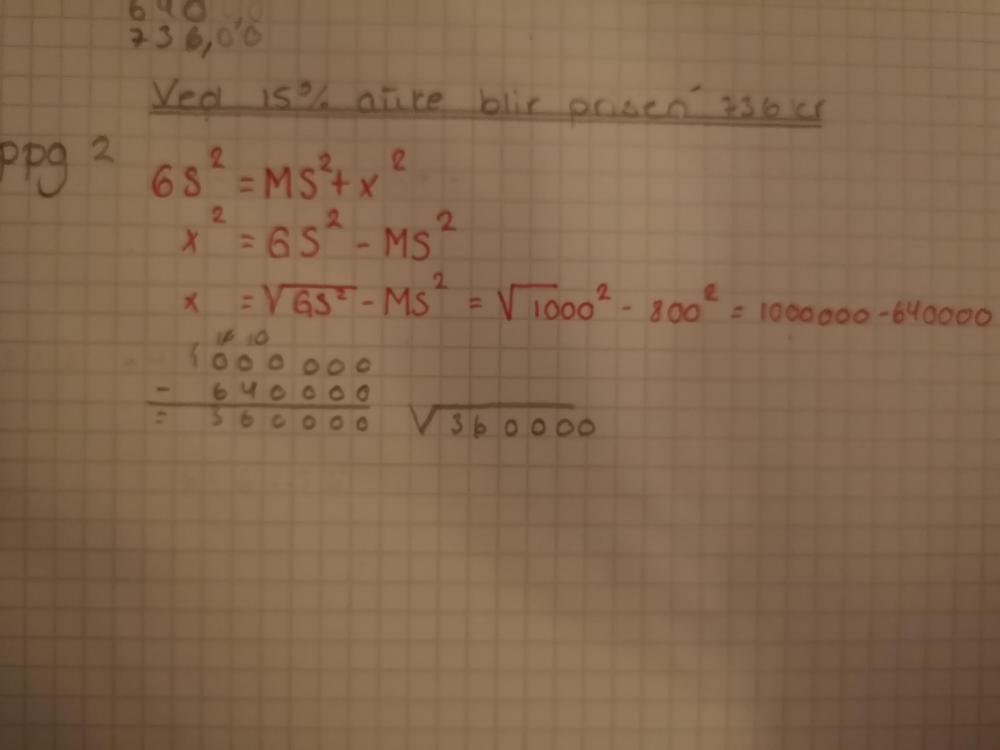 640
736,00
Ved 15% øùke blir prisen 736 kr
ppg 2
GS² = MS² + x²
x² = GS² - MS²
x = √GS² - MS² = √1000² - 800² = 1000000 - 640000
10 10
1000000
- 640000
= 360000 √360000